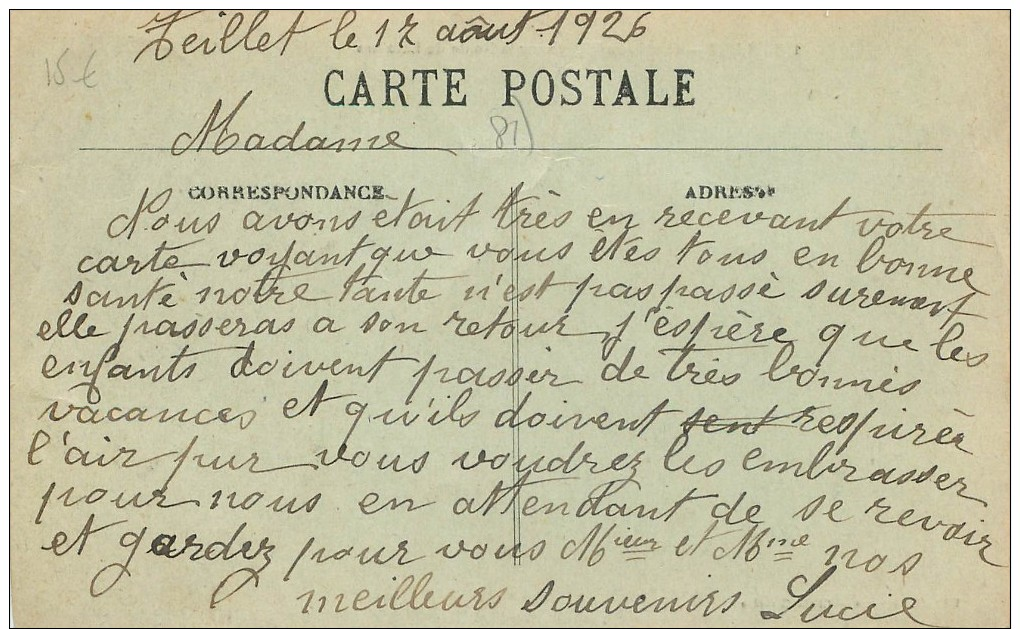 Teillet le 17 août 1926
15 €
CARTE POSTALE
Madame
81)
CORRESPONDANCE
ADRESSE
Nous avons etait très en recevant votre
carte voyant que vous êtes tous en bonne
santè notre tante n'est pas passè
elle passeras a son retour j'éspère que les
enfants doivent passer de très bonnes
vacances et qu'ils doivent sent respirer
l'air pur vous voudrez les embrasser
pour nous en attendant de se revoir
et gardez pour vous Mieur et Mme nos
meilleurs souvenirs Lucie